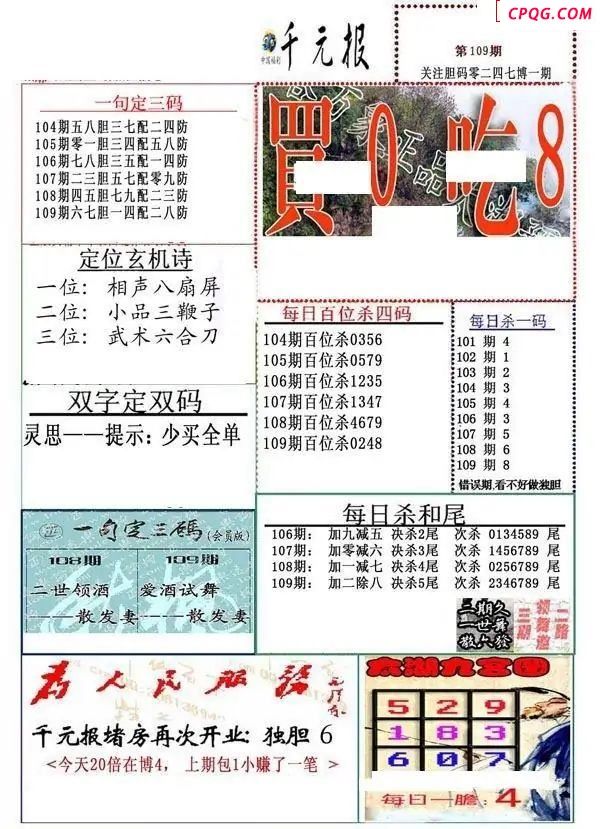 CPQG.COM
中国福彩
千元报
第109期
关注胆码零二四七博一期
一句定三码
104期五八胆三七配二四防
105期零一胆三四配五八防
106期七八胆三五配一四防
107期二三胆五七配零九防
108期四五胆七九配二三防
109期六七胆一四配二八防
買0吃8
定位玄机诗
一位：相声八扇屏
二位：小品三鞭子
三位：武术六合刀
每日百位杀四码
104期百位杀0356
105期百位杀0579
106期百位杀1235
107期百位杀1347
108期百位杀4679
109期百位杀0248
每日杀一码
101 期 4
102 期 1
103 期 2
104 期 3
105 期 4
106 期 3
107 期 5
108 期 6
109 期 8
错误期,看不好做独胆
双字定双码
灵思——提示：少买全单
一句定三碼(会员版)
108期
二世领酒
——散发妻
109期
爱酒试舞
——散发妻
每日杀和尾
106期： 加九减五 决杀2尾 次杀 0134589 尾
107期： 加零减六 决杀3尾 次杀 1456789 尾
108期： 加一减七 决杀4尾 次杀 0256789 尾
109期： 加二除八 决杀5尾 次杀 2346789 尾
三期久
一世舞
散六發
为人民服务
千元报堵房再次开业：独胆 6
<今天20倍在博4， 上期包1小赚了一笔 >
太湖九宫图
5 2 9
1 8 3
6 0 7
每日一膽：4